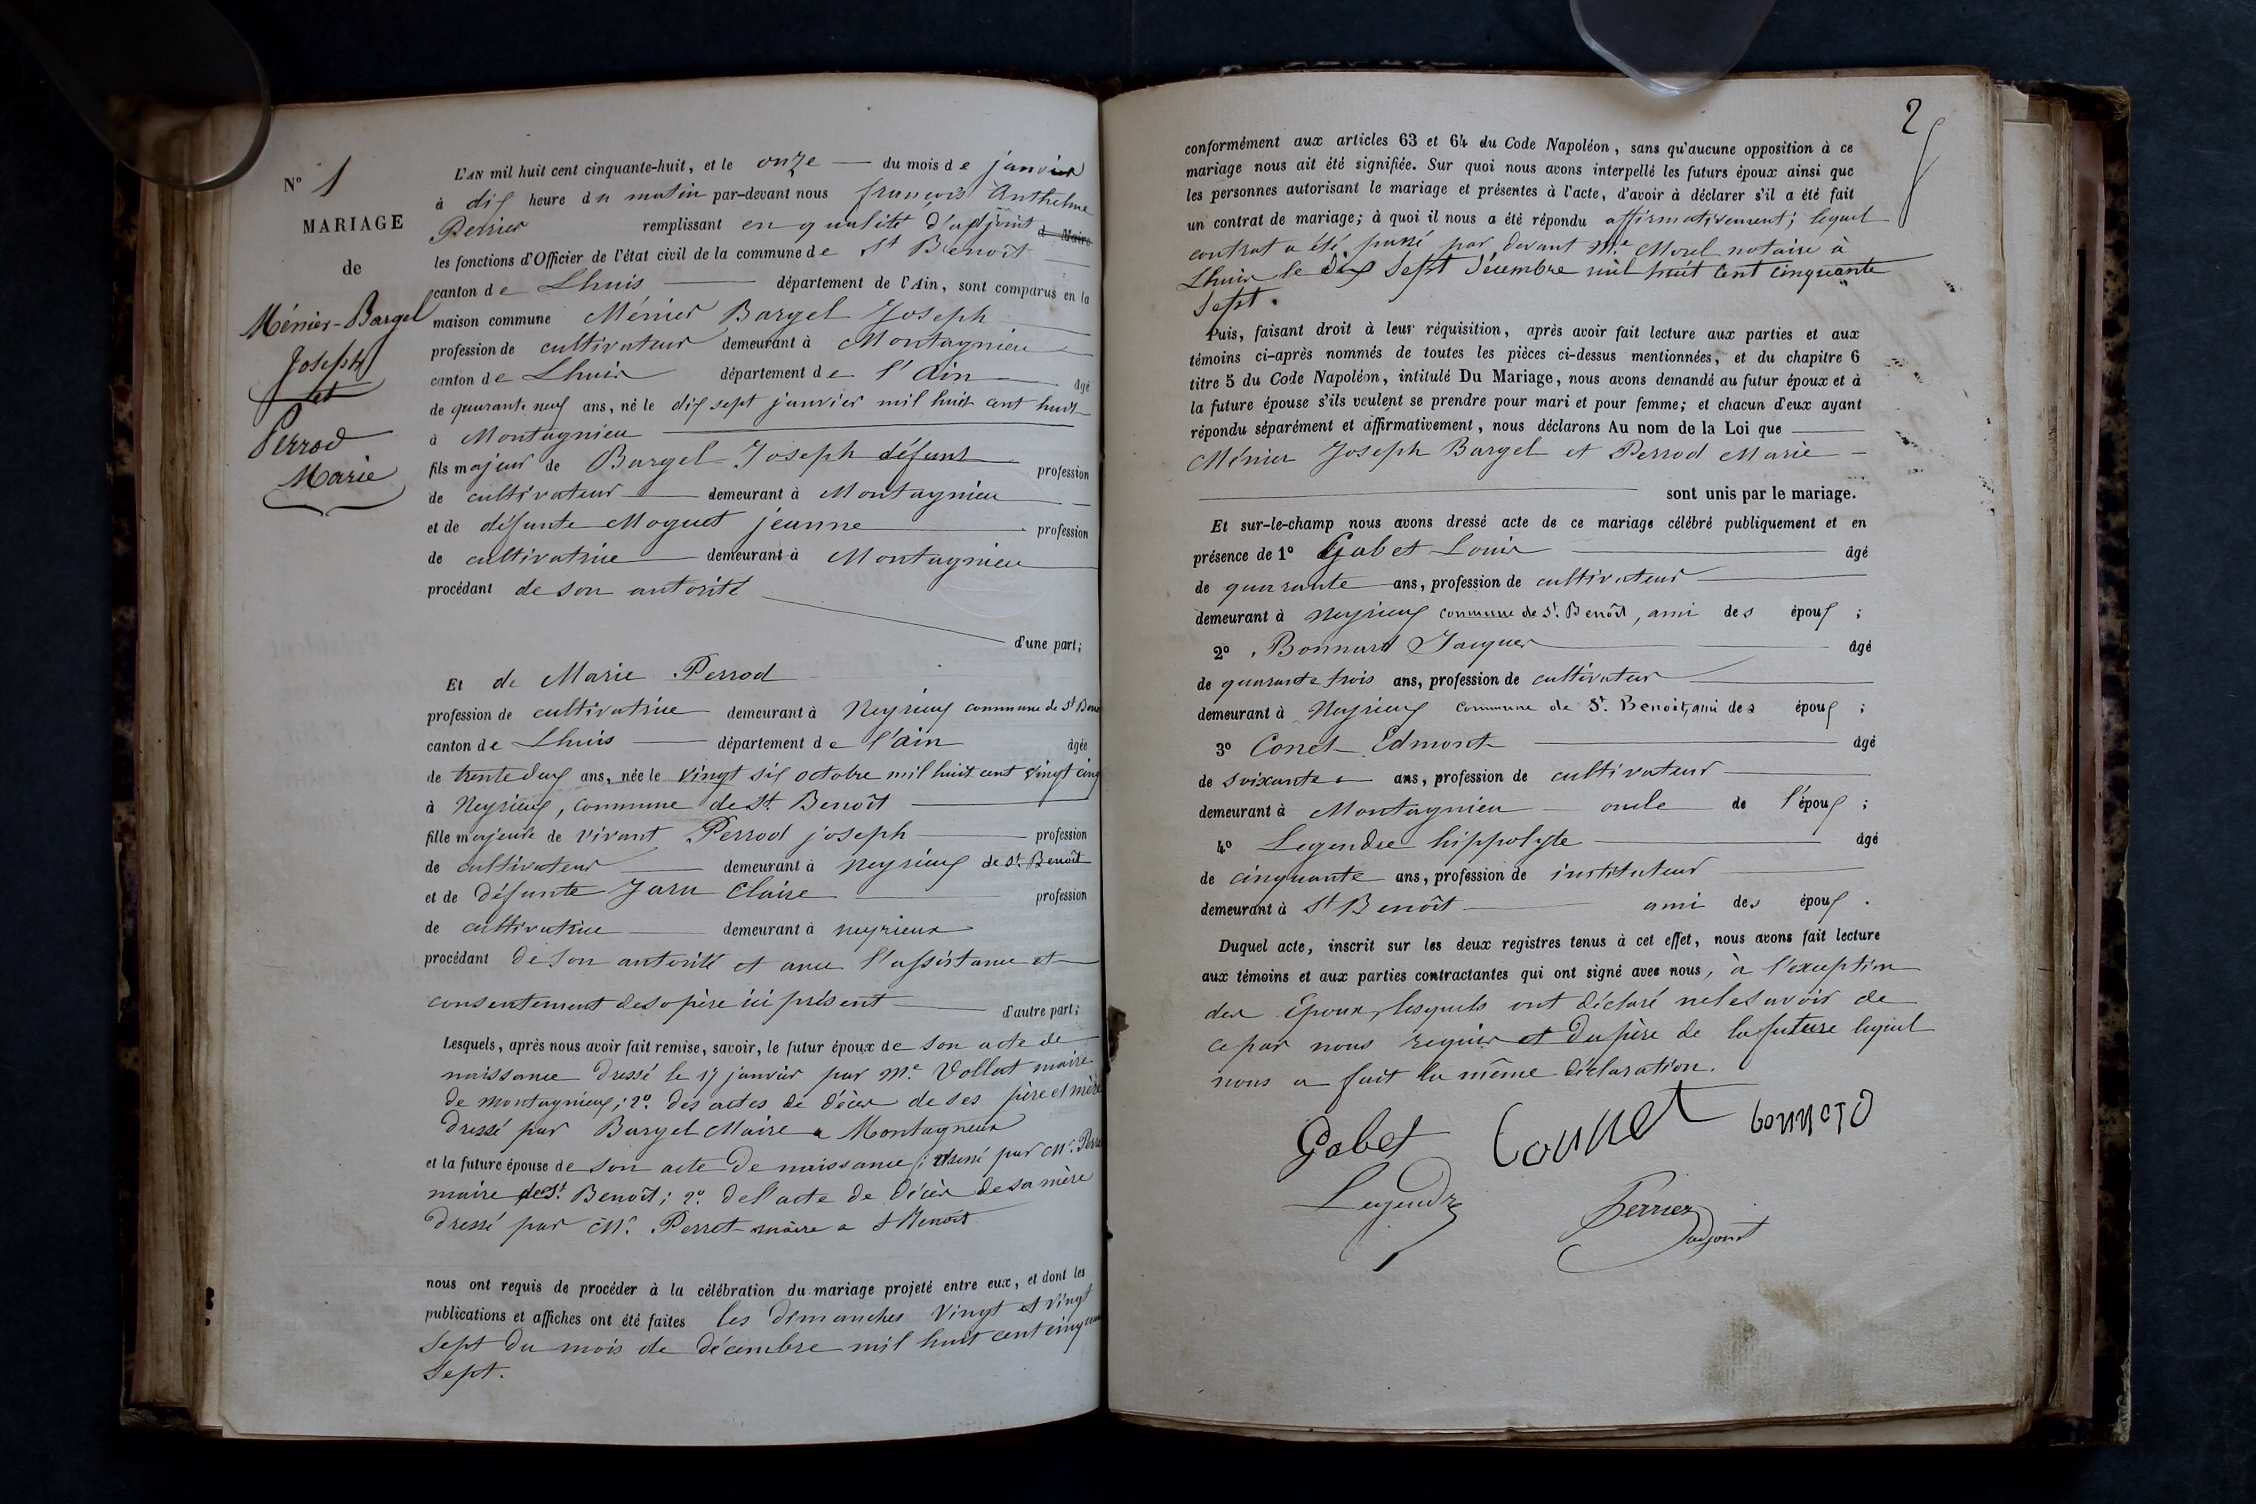 N° 1
MARIAGE
de
Ménier-Bargel
Joseph
et
Perrod
Marie
L'AN mil huit cent cinquante-huit, et le onze du mois de janvier
à dix heure du matin par-devant nous françois Anthelme
Perrier remplissant en qualité d'adjoint d Maire
les fonctions d'Officier de l'état civil de la commune de St Benoît
canton de Lhuis département de l'Ain, sont comparus en la
maison commune Ménier Bargel Joseph
profession de cultivateur demeurant à Montagnieu
canton de Lhuis département de l'Ain âgé
de quarante neuf ans, né le dix sept janvier mil huit cent huit
à Montagnieu
fils majeur de Bargel Joseph défunt profession
de cultivateur demeurant à Montagnieu
et de défunte Moguet jeanne profession
de cultivatrice demeurant à Montagnieu
procédant de son autorité
d'une part;
Et de Marie Perrod
profession de cultivatrice demeurant à Neyrieux commune de St Benoit
canton de Lhuis département de l'Ain âgée
de trente deux ans, née le vingt six octobre mil huit cent vingt cinq
à Neyrieux, commune de St Benoît
fille majeure de vivant Perrod joseph profession
de cultivateur demeurant à Neyrieux de St Benoît
et de défunte Jaru Claire profession
de cultivatrice demeurant à neyrieux
procédant de son autorité et avec l'assistance et
consentement de so père ici présent d'autre part;
Lesquels, après nous avoir fait remise, savoir, le futur époux de son acte de
naissance dressé le 17 janvier par Me Vollat maire
de montagnieux; 2° des actes de décès de ses père et mère
dressé par Bargel Maire a Montagneux
et la future épouse de son acte de naissance; dressé par Mr.
maire de St Benoît; 2° de l'acte de décès de sa mère
dressé par Mr. Perret maire a St Benoît
nous ont requis de procéder à la célébration du mariage projeté entre eux, et dont les
publications et affiches ont été faites les dimanches vingt et vingt
sept du mois de décembre mil huit cent cinquante
sept.
2
conformément aux articles 63 et 64 du Code Napoléon, sans qu'aucune opposition à ce
mariage nous ait été signifiée. Sur quoi nous avons interpellé les futurs époux ainsi que
les personnes autorisant le mariage et présentes à l'acte, d'avoir à déclarer s'il a été fait
un contrat de mariage; à quoi il nous a été répondu affirmativement; lequel
contrat a été passé par devant Me Morel notaire à
Lhuis le dix sept décembre mil huit cent cinquante
sept.
Puis, faisant droit à leur réquisition, après avoir fait lecture aux parties et aux
témoins ci-après nommés de toutes les pièces ci-dessus mentionnées, et du chapitre 6
titre 5 du Code Napoléon, intitulé Du Mariage, nous avons demandé au futur époux et à
la future épouse s'ils veulent se prendre pour mari et pour femme; et chacun d'eux ayant
répondu séparément et affirmativement, nous déclarons Au nom de la Loi que
Ménier Joseph Bargel et Perrod Marie
sont unis par le mariage.
Et sur-le-champ nous avons dressé acte de ce mariage célébré publiquement et en
présence de 1° Gabet Louis âgé
de quarante ans, profession de cultivateur
demeurant à Neyrieux commune de St. Benoît, ami des époux ;
2° Bonnard Jacques âgé
de quarante trois ans, profession de cultivateur
demeurant à Neyrieux commune de St. Benoit, ami des époux ;
3° Conet Edmont âgé
de soixante ans, profession de cultivateur
demeurant à Montagnieu oncle de l'époux ;
4° Legendre hippolyte âgé
de cinquante ans, profession de instituteur
demeurant à St Benoît ami des époux .
Duquel acte, inscrit sur les deux registres tenus à cet effet, nous avons fait lecture
aux témoins et aux parties contractantes qui ont signé avec nous, à l'exception
des Epoux, lesquels ont déclaré ne le savoir de
ce par nous requis et du père de la future lequel
nous a fait la même déclaration.
Gabet Connet bonnard
Legendre Perrier
adjoint